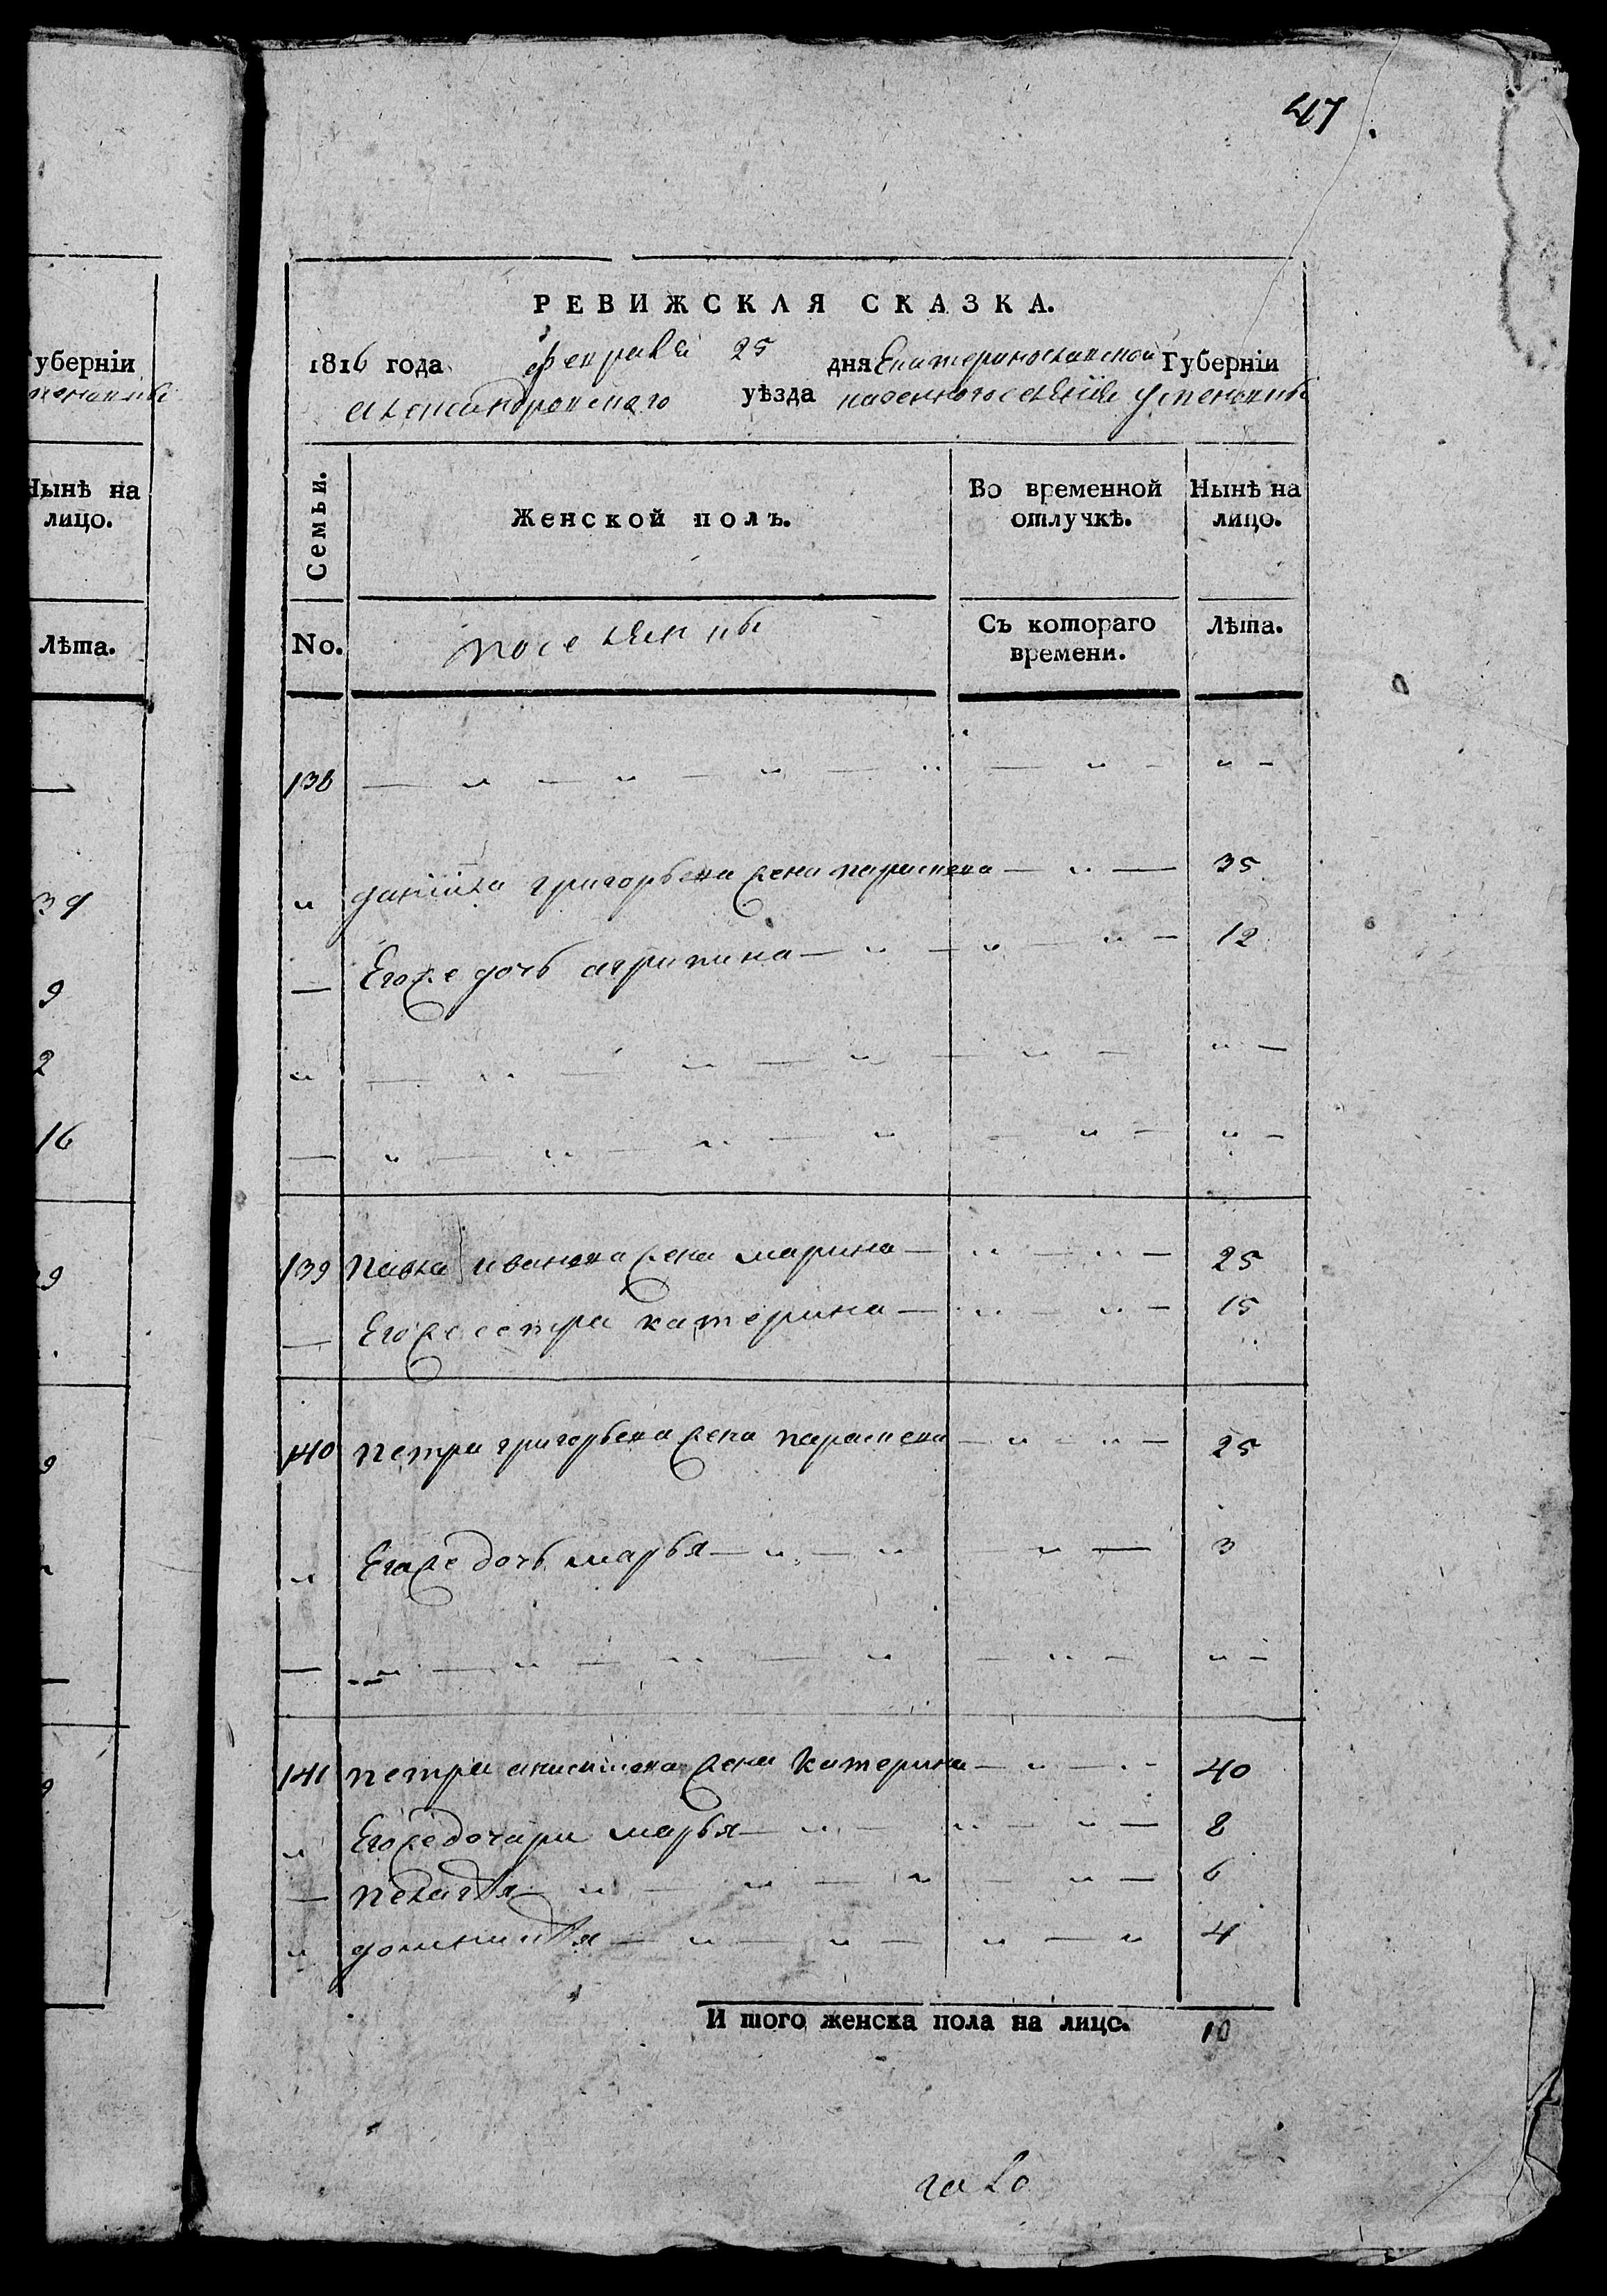 47
РЕВИЖСКАЯ СКАЗКА.
1816 года февраля 25 дня Екатеринославской Губерніи
александровского уѣзда казенного селенія успеновки
Семьи.
Женской полъ.
Во временной отлучкѣ.
Нынѣ на лицо.
No.
поселянины
Съ котораго времени.
Лѣта.
138 — „ — „ — „ — „ — „ — „ —
„ данійла григорьева жена параскева — „ — 35
— Егоже дочь агрипина — „ — „ — „ — 12
„ — „ — „ — „ — „ — „ —
— „ — „ — „ — „ — „ — „ —
139 павла иванова жена марина — „ — „ — 25
— Егоже сестра катерина — „ — „ — 15
140 петра григорьева жена параскева — „ — „ — 25
„ Егоже дочь марья — „ — „ — „ — 3
— „ — „ — „ — „ — „ — „ —
141 петра анисимова жена катерина — „ — „ — 40
„ Егоже дочери марья — „ — „ — „ — 8
— пелагѣя — „ — „ — „ — „ — 6
„ домникѣя — „ — „ — „ — „ 4
И того женска пола на лицо. 10
губерніи
Нынѣ на
лицо.
Лѣта.
39
9
2
16